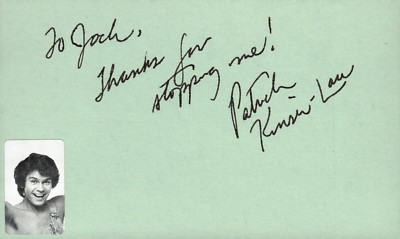 To Jack,
Thanks for
stopping me!
Patrick
Kinser-Lau